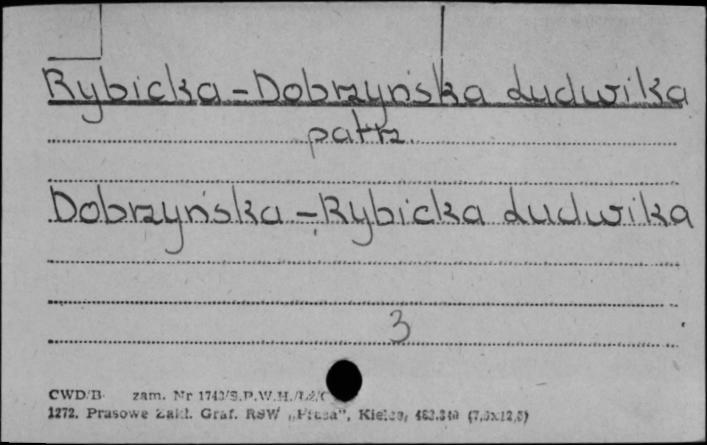 Rybicka-Dobrzyńska Ludwika
patrz
Dobrzyńska-Rybicka Ludwika
3
CWD/B zam. Nr 1743/S.P.W.H.
1272. Prasowe Zakł. Graf. RSW „Prasa", Kielce, 483.340 (7,5x12,5)